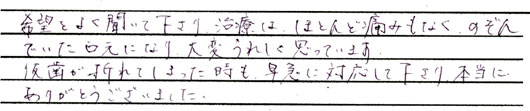 希望をよく聞いて下さり、治療は、ほとんど痛みもなく、のぞん
でいた口元になり、大変うれしく思っています。
仮歯が折れてしまった時も、早急に対応して下さり、本当に
ありがとうございました。